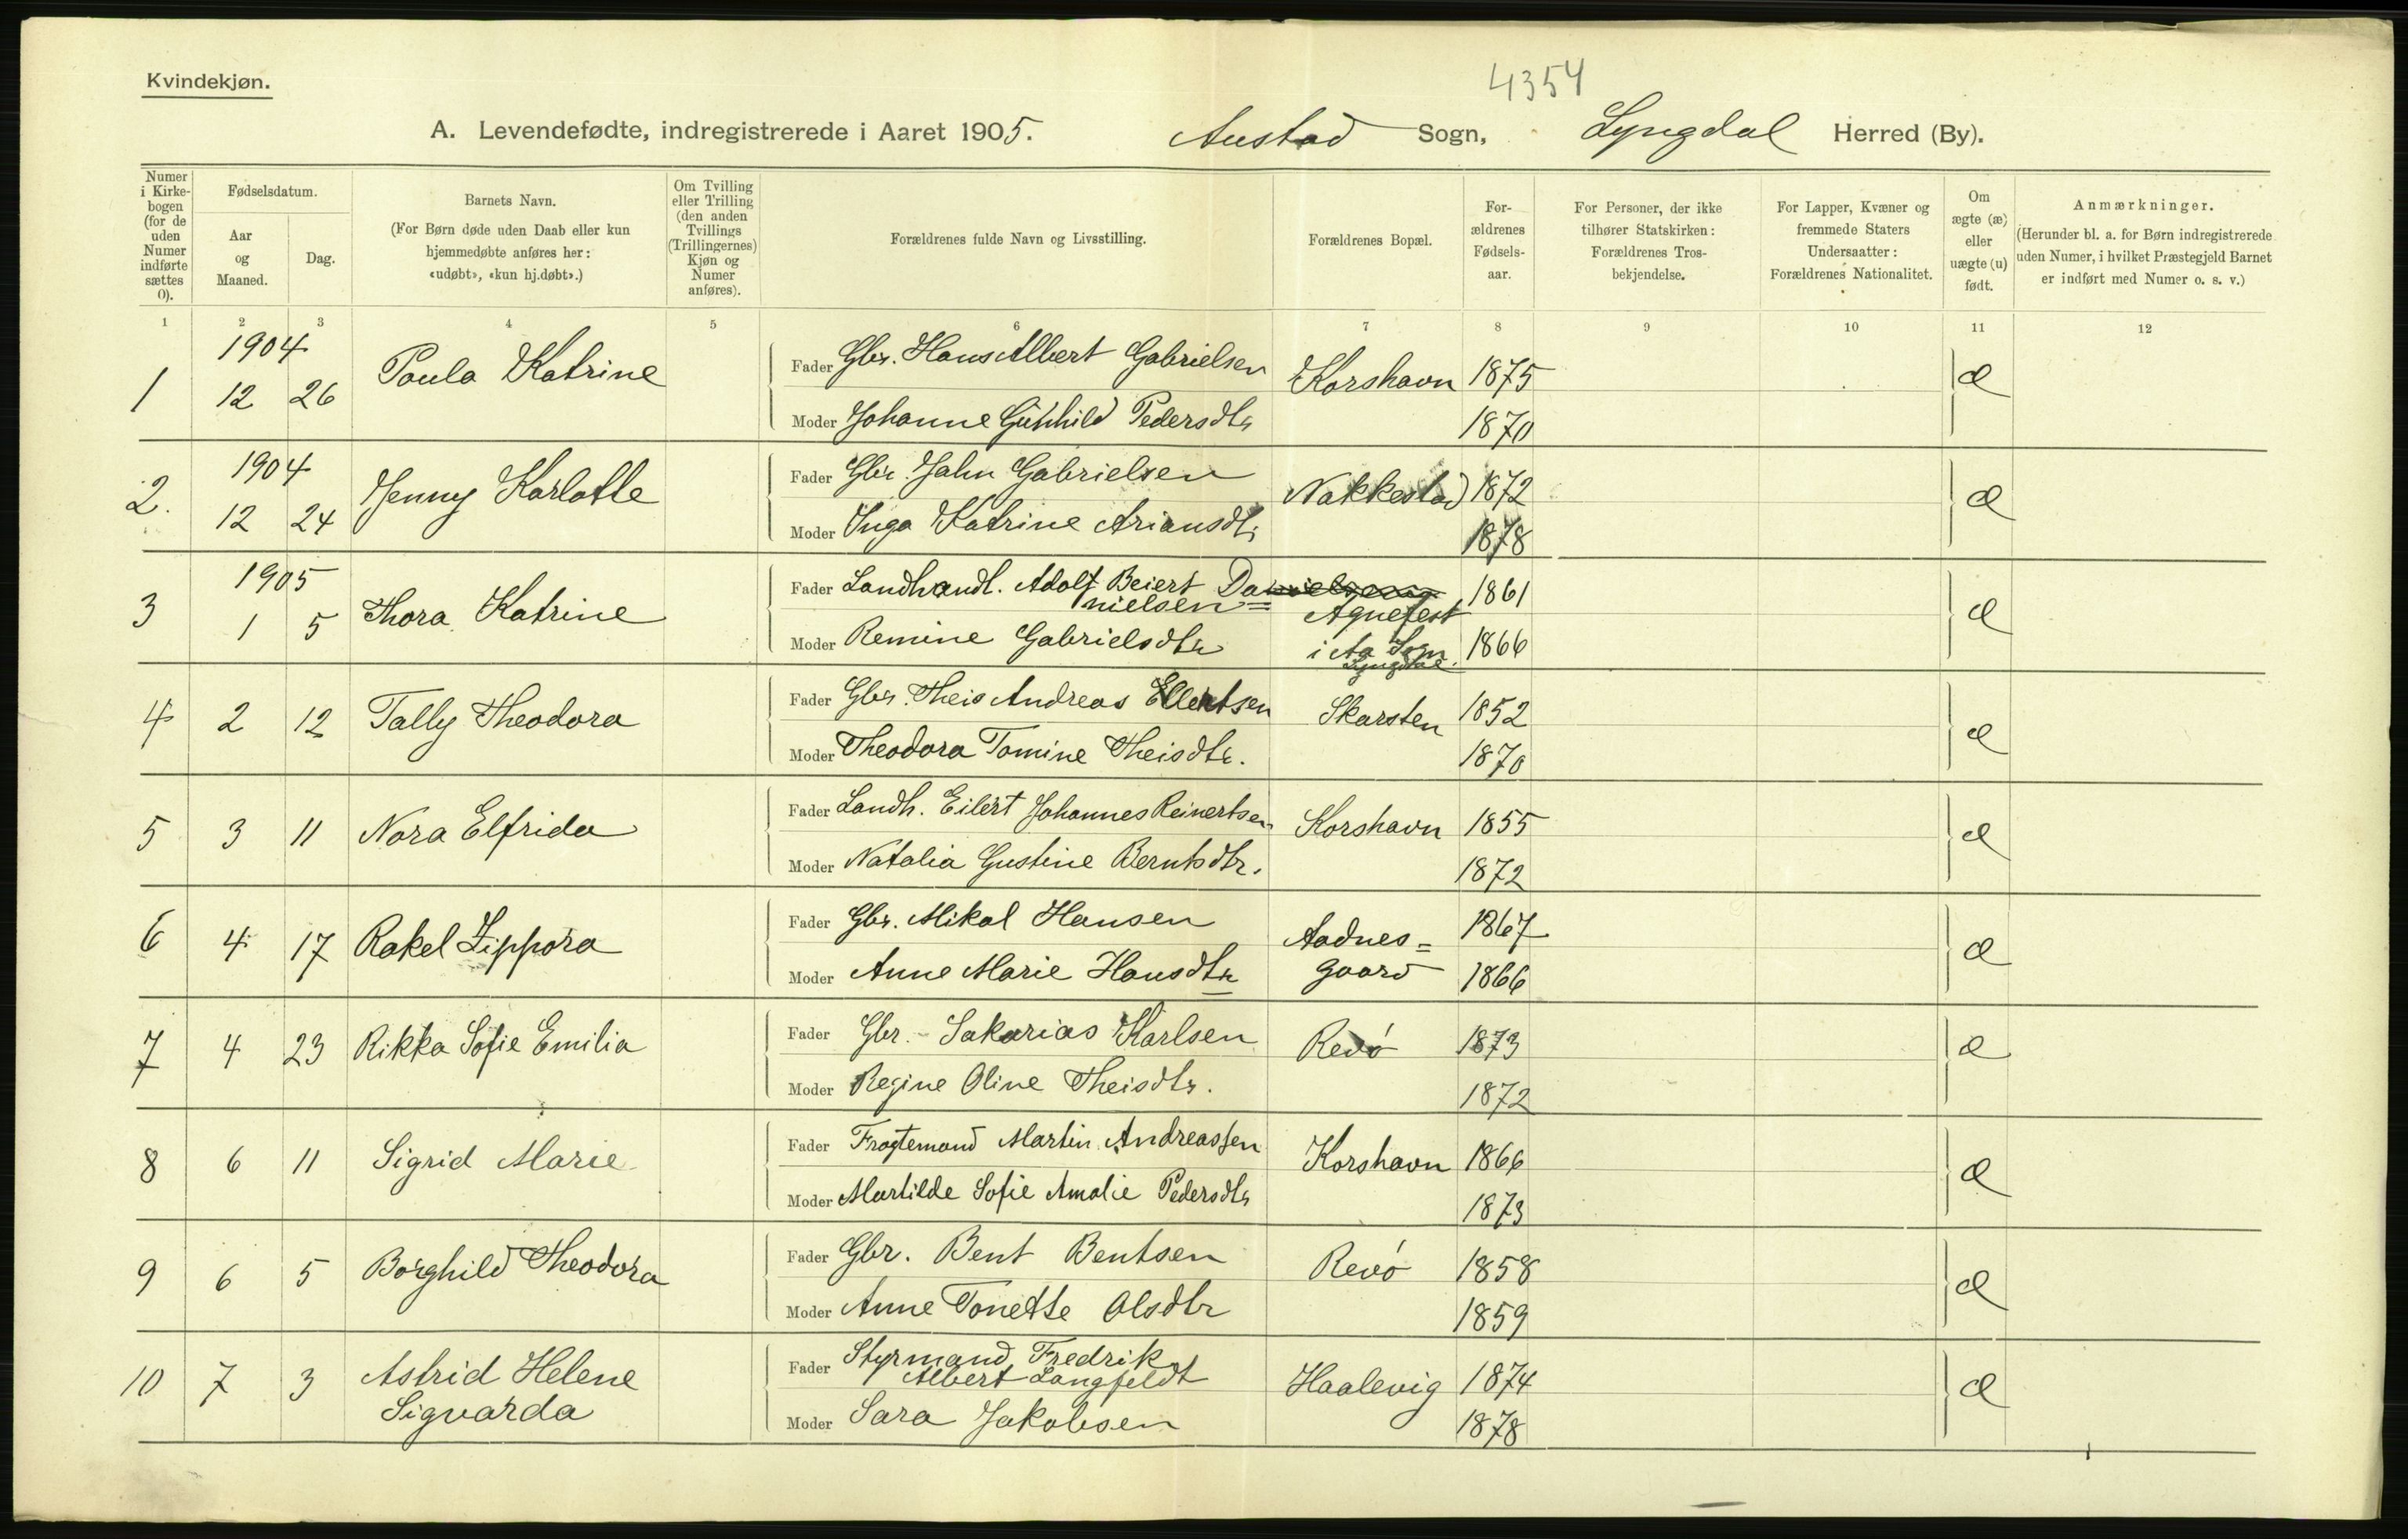 4354
Kvindekjøn.
A. Levendefødte, indregistrerede i Aaret 1905. Austad Sogn, Lyngdal Herred (By).
Numer i Kirkebogen (for de uden Numer indførte sættes 0).
Fødselsdatum.
Aar og Maaned.
Dag.
Barnets Navn.
(For Børn døde uden Daab eller kun hjemmedøbte anføres her: «udøbt», «kun hj.døbt».)
Om Tvilling eller Trilling (den anden Tvillings (Trillingernes) Kjøn og Numer anføres).
Forældrenes fulde Navn og Livsstilling.
Forældrenes Bopæl.
Forældrenes Fødselsaar.
For Personer, der ikke tilhører Statskirken: Forældrenes Trosbekjendelse.
For Lapper, Kvæner og fremmede Staters Undersaatter: Forældrenes Nationalitet.
Om ægte (æ) eller uægte (u) født.
Anmærkninger.
(Herunder bl. a. for Børn indregistrerede uden Numer, i hvilket Præstegjeld Barnet er indført med Numer o. s. v.)
1 2 3 4 5 6 7 8 9 10 11 12
1904
1 12 26 Paula Katrine Fader Gbr. Hans Albert Gabrielsen Korshavn 1875 æ
Moder Johanne Gunhild Pedersdtr 1870
1904
2. 12 24 Jenny Karlotte Fader Gbr. Jahn Gabrielsen Nakkestad 1872 æ
Moder Inga Katrine Ariansdtr 1878
1905
3 1 5 Thora Katrine Fader Landhandl. Adolf Beiert Danielsen 1861 æ
nielsen= Agnefest
Moder Remine Gabrielsdtr i Aa Sogn 1866
Lyngdal.
4 2 12 Tally Theodora Fader Gbr. Theis Andreas Ellertsen Skarsten 1852 æ
Moder Theodora Tomine Theisdtr. 1870
5 3 11 Nora Elfrida Fader Landh. Eilert Johannes Reinertsen Korshavn 1855 æ
Moder Natalia Gustine Berntsdtr. 1872
6 4 17 Rakel Zippora Fader Gbr. Mikal Hansen Aadnes= 1867 æ
Moder Anne Marie Hansdtr gaard 1866
7 4 23 Rikka Sofie Emilia Fader Gbr. Sakarias Karlsen Revö 1873 æ
Moder Regine Oline Theisdtr. 1872
8 6 11 Sigrid Marie Fader Fragtemand Martin Andreassen Korshavn 1866 æ
Moder Martilde Sofie Amalie Pedersdtr 1873
9 6 5 Borghild Theodora Fader Gbr. Bent Bentsen Revö 1858 æ
Moder Anne Tonette Olsdtr 1859
10 7 3 Astrid Helene Fader Styrmand Fredrik
Albert Langfeldt Haalevig 1874 æ
Sigvarda Moder Sara Jakobsen 1878